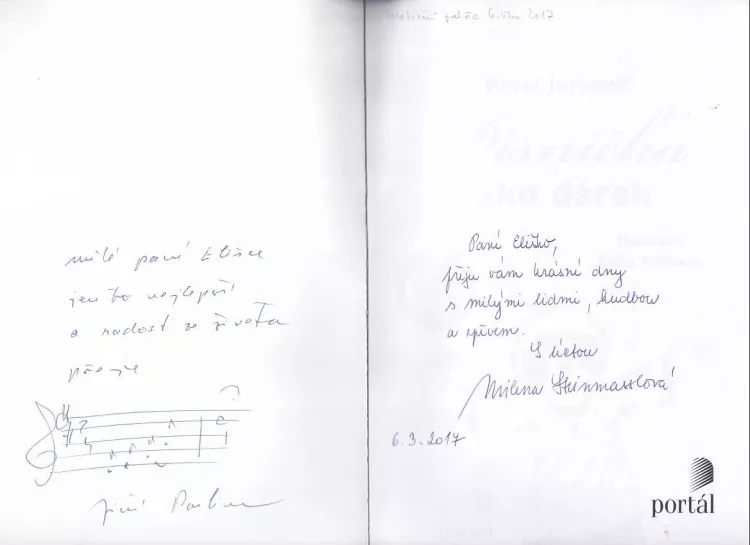 milé paní Elišce
jen to nejlepší
a radost ze života
přeje
Jiří
6. 2017
Pavel Jurkovič
ko dárek
Paní Eliško,
přeju vám krásné dny
s milými lidmi, hudbou
a zpěvem.
S úctou
Milena Steinmasslová
6.3.2017
portál